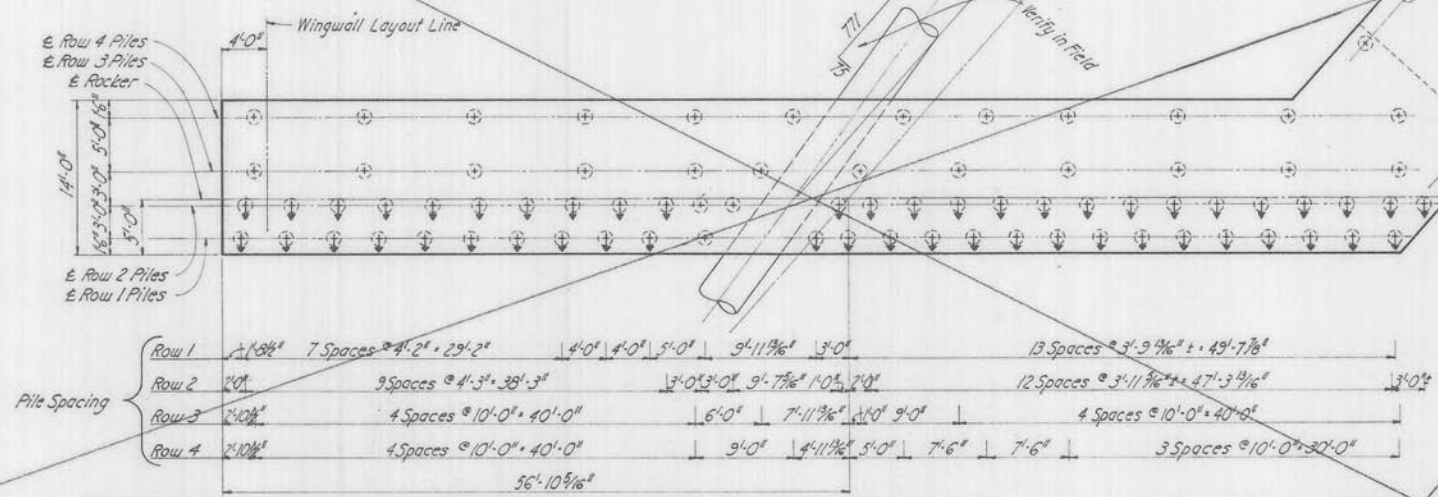 Wingwall Layout Line
℄ Row 4 Piles
℄ Row 3 Piles
℄ Rocker
4'-0"
77.1
75
Verify in Field
14'-0"
1'-6" 3'-0" 3'-0" 5'-0" 1'-6"
5'-0"
℄ Row 2 Piles
℄ Row 1 Piles
Pile Spacing
Row 1 1'-8½" 7 Spaces @ 4'-2" = 29'-2" 4'-0" 4'-0" 5'-0" 9'-11 13/16" 3'-0" 13 Spaces @ 3'-9 13/16" ± = 49'-7 7/8"
Row 2 2'-0" 9 Spaces @ 4'-3" = 38'-3" 3'-0" 3'-0" 9'-7 5/16" 1'-0" 2'-0" 12 Spaces @ 3'-11 5/16" ± = 47'-3 13/16" 3'-0" ±
Row 3 2'-10½" 4 Spaces @ 10'-0" = 40'-0" 6'-0" 7'-11 13/16" 1'-0" 9'-0" 4 Spaces @ 10'-0" = 40'-0"
Row 4 2'-10½" 4 Spaces @ 10'-0" = 40'-0" 9'-0" 4'-11 13/16" 5'-0" 7'-6" 7'-6" 3 Spaces @ 10'-0" = 30'-0"
56'-10 5/16"